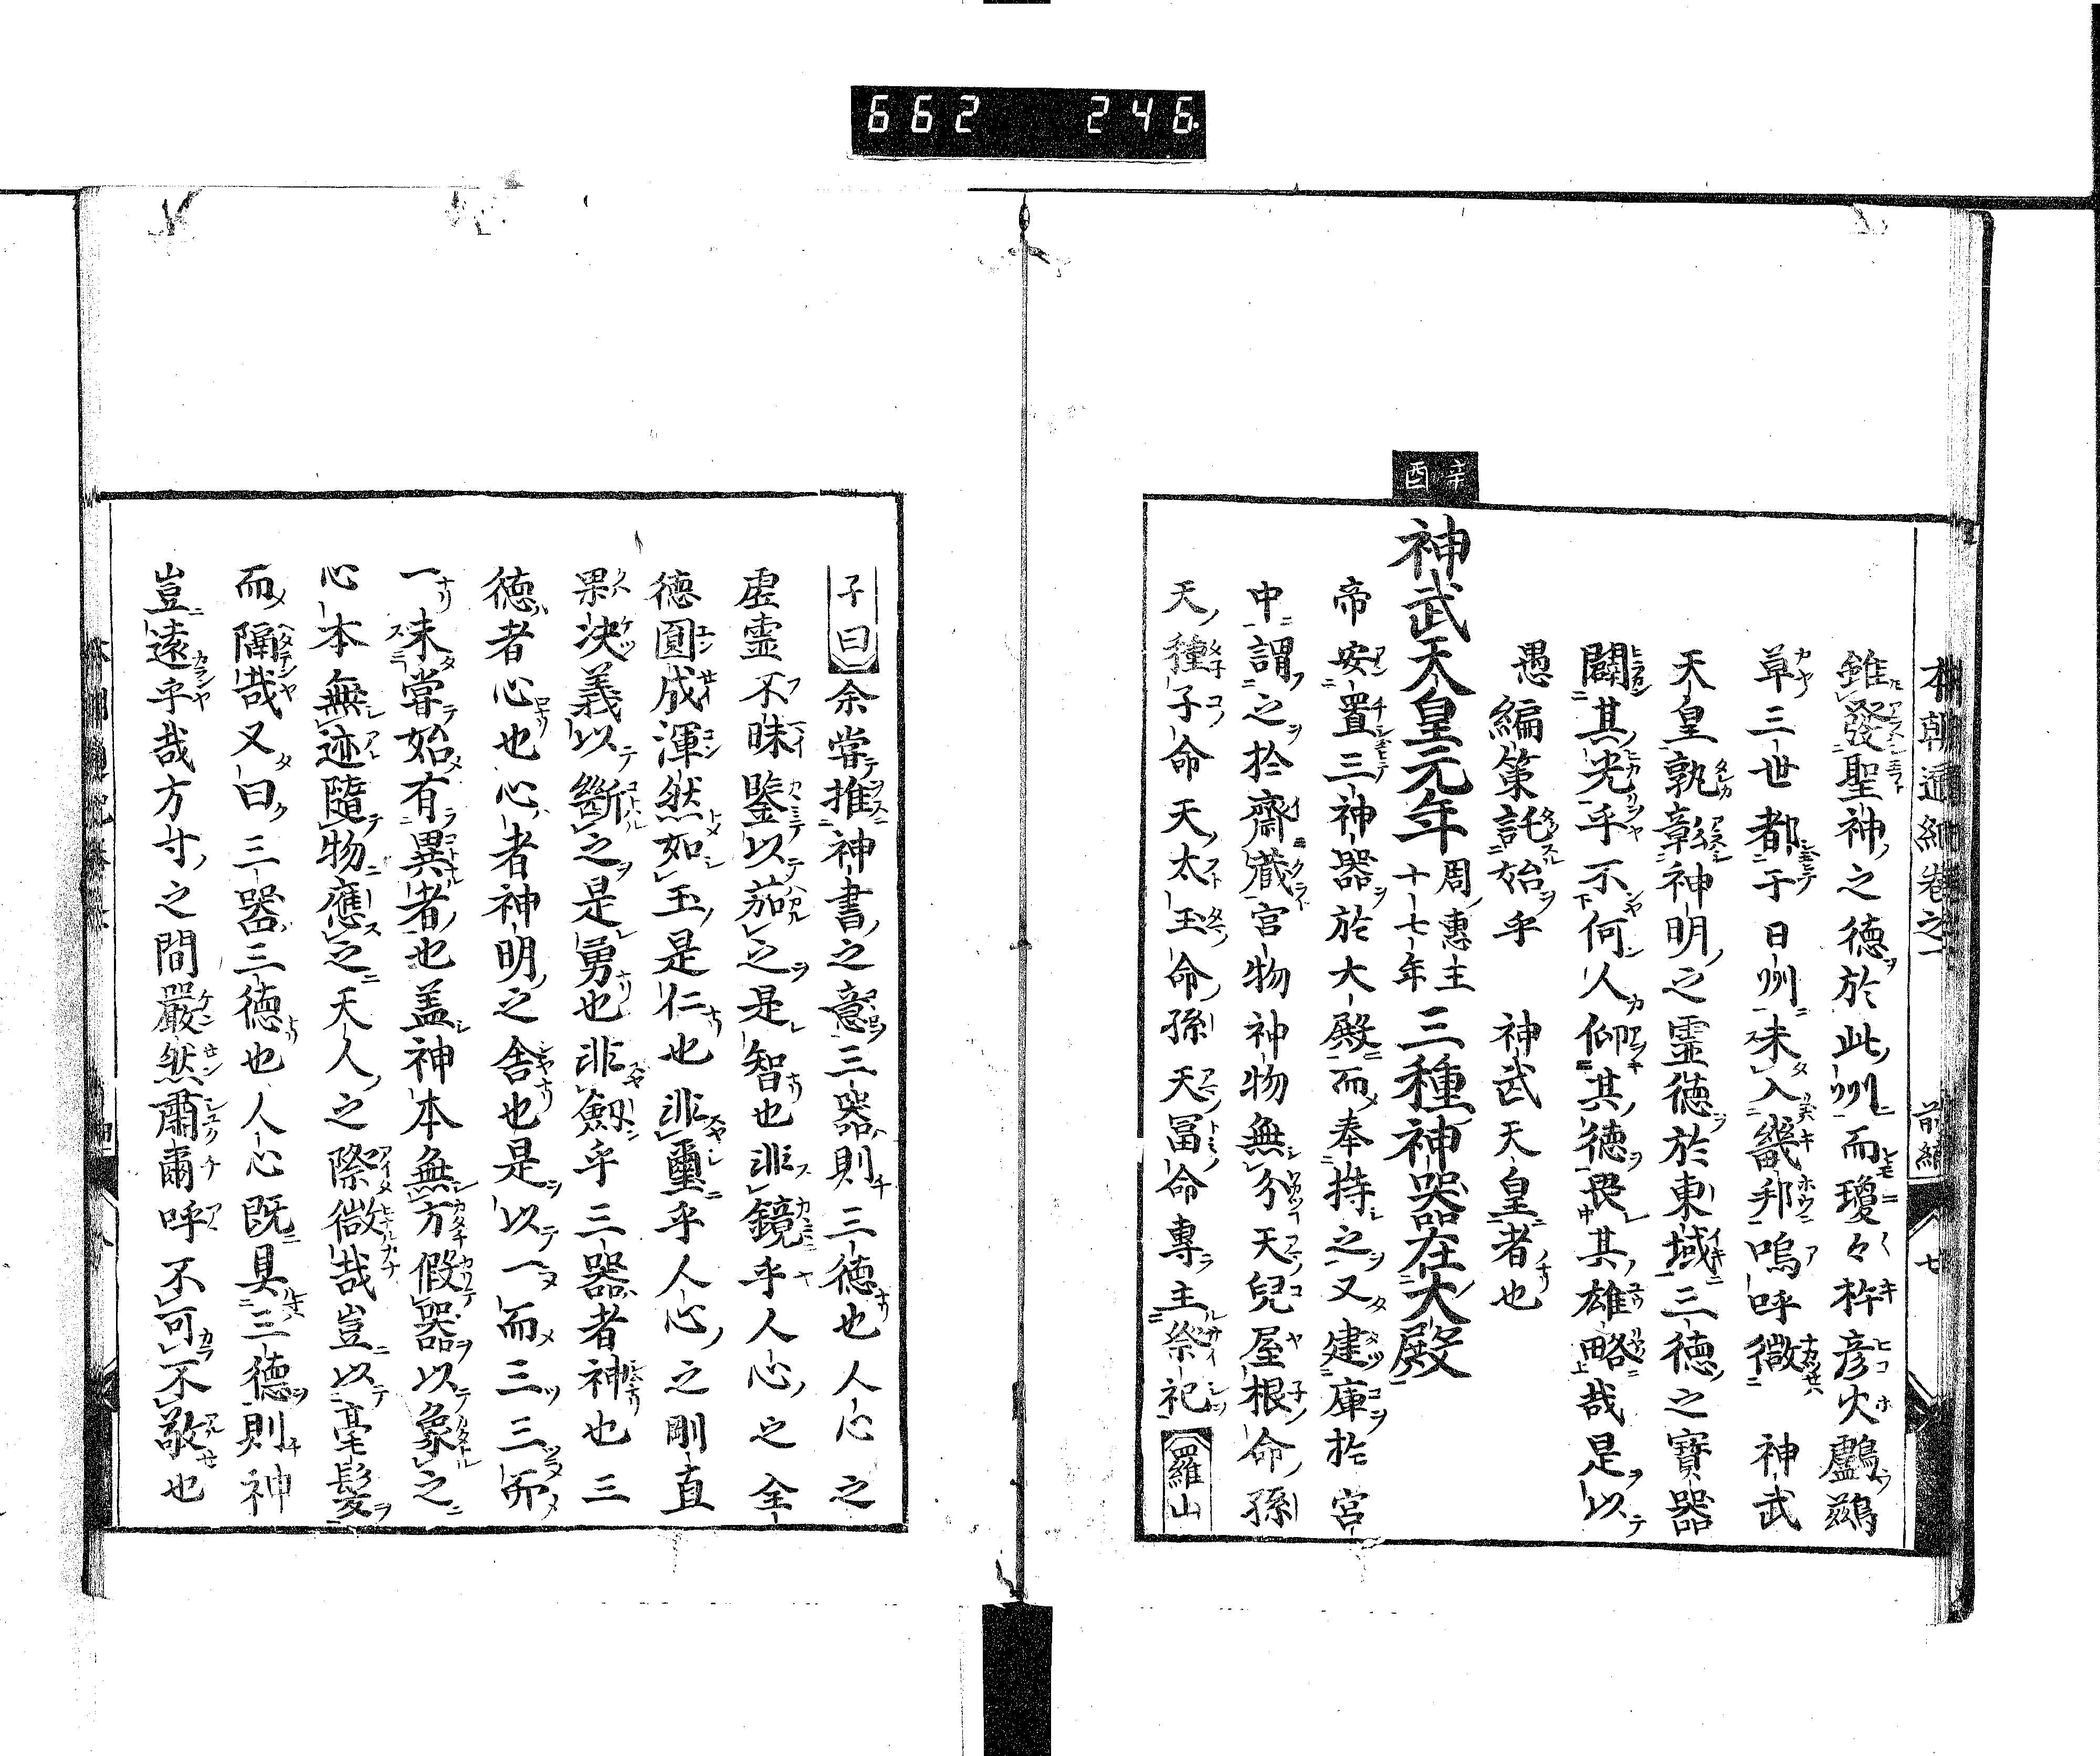 662 246.
本朝通紀巻之一 前編 七
雖發聖神之德於此州而瓊々杵彦火鸕鷀
草三世都于日州未入畿邦嗚呼微神武
天皇孰彰神明之霊德於東域三德之寶器
闢其光乎不何人仰其德畏其雄略哉是以
愚編策託始乎神武天皇者也
辛酉
神武天皇元年 周惠主十七年 三種神器在大殿
帝安置三神器於大殿而奉持之又建庫於宮
中謂之於齋蔵官物神物無分天兒屋根命孫
天種子命天太玉命孫天冨命專主祭祀 羅山
子曰 余嘗推神書之意三器則三德也人心之
虚霊不昧鑒以茹之是智也非鏡乎人心之全
德圓成渾然如玉是仁也非璽乎人心之剛直
果決義以斷之是勇也非劔乎三器者神也三
德者心也心者神明之舎也是以一而三三而
一未嘗始有異者也盖神本無方假器以象之
心本無迹隨物應之天人之際微哉豈以毫髪
而隔哉又曰三器三德也人心既具三德則神
豈遠乎哉方寸之間嚴然肅肅呼不可不敬也